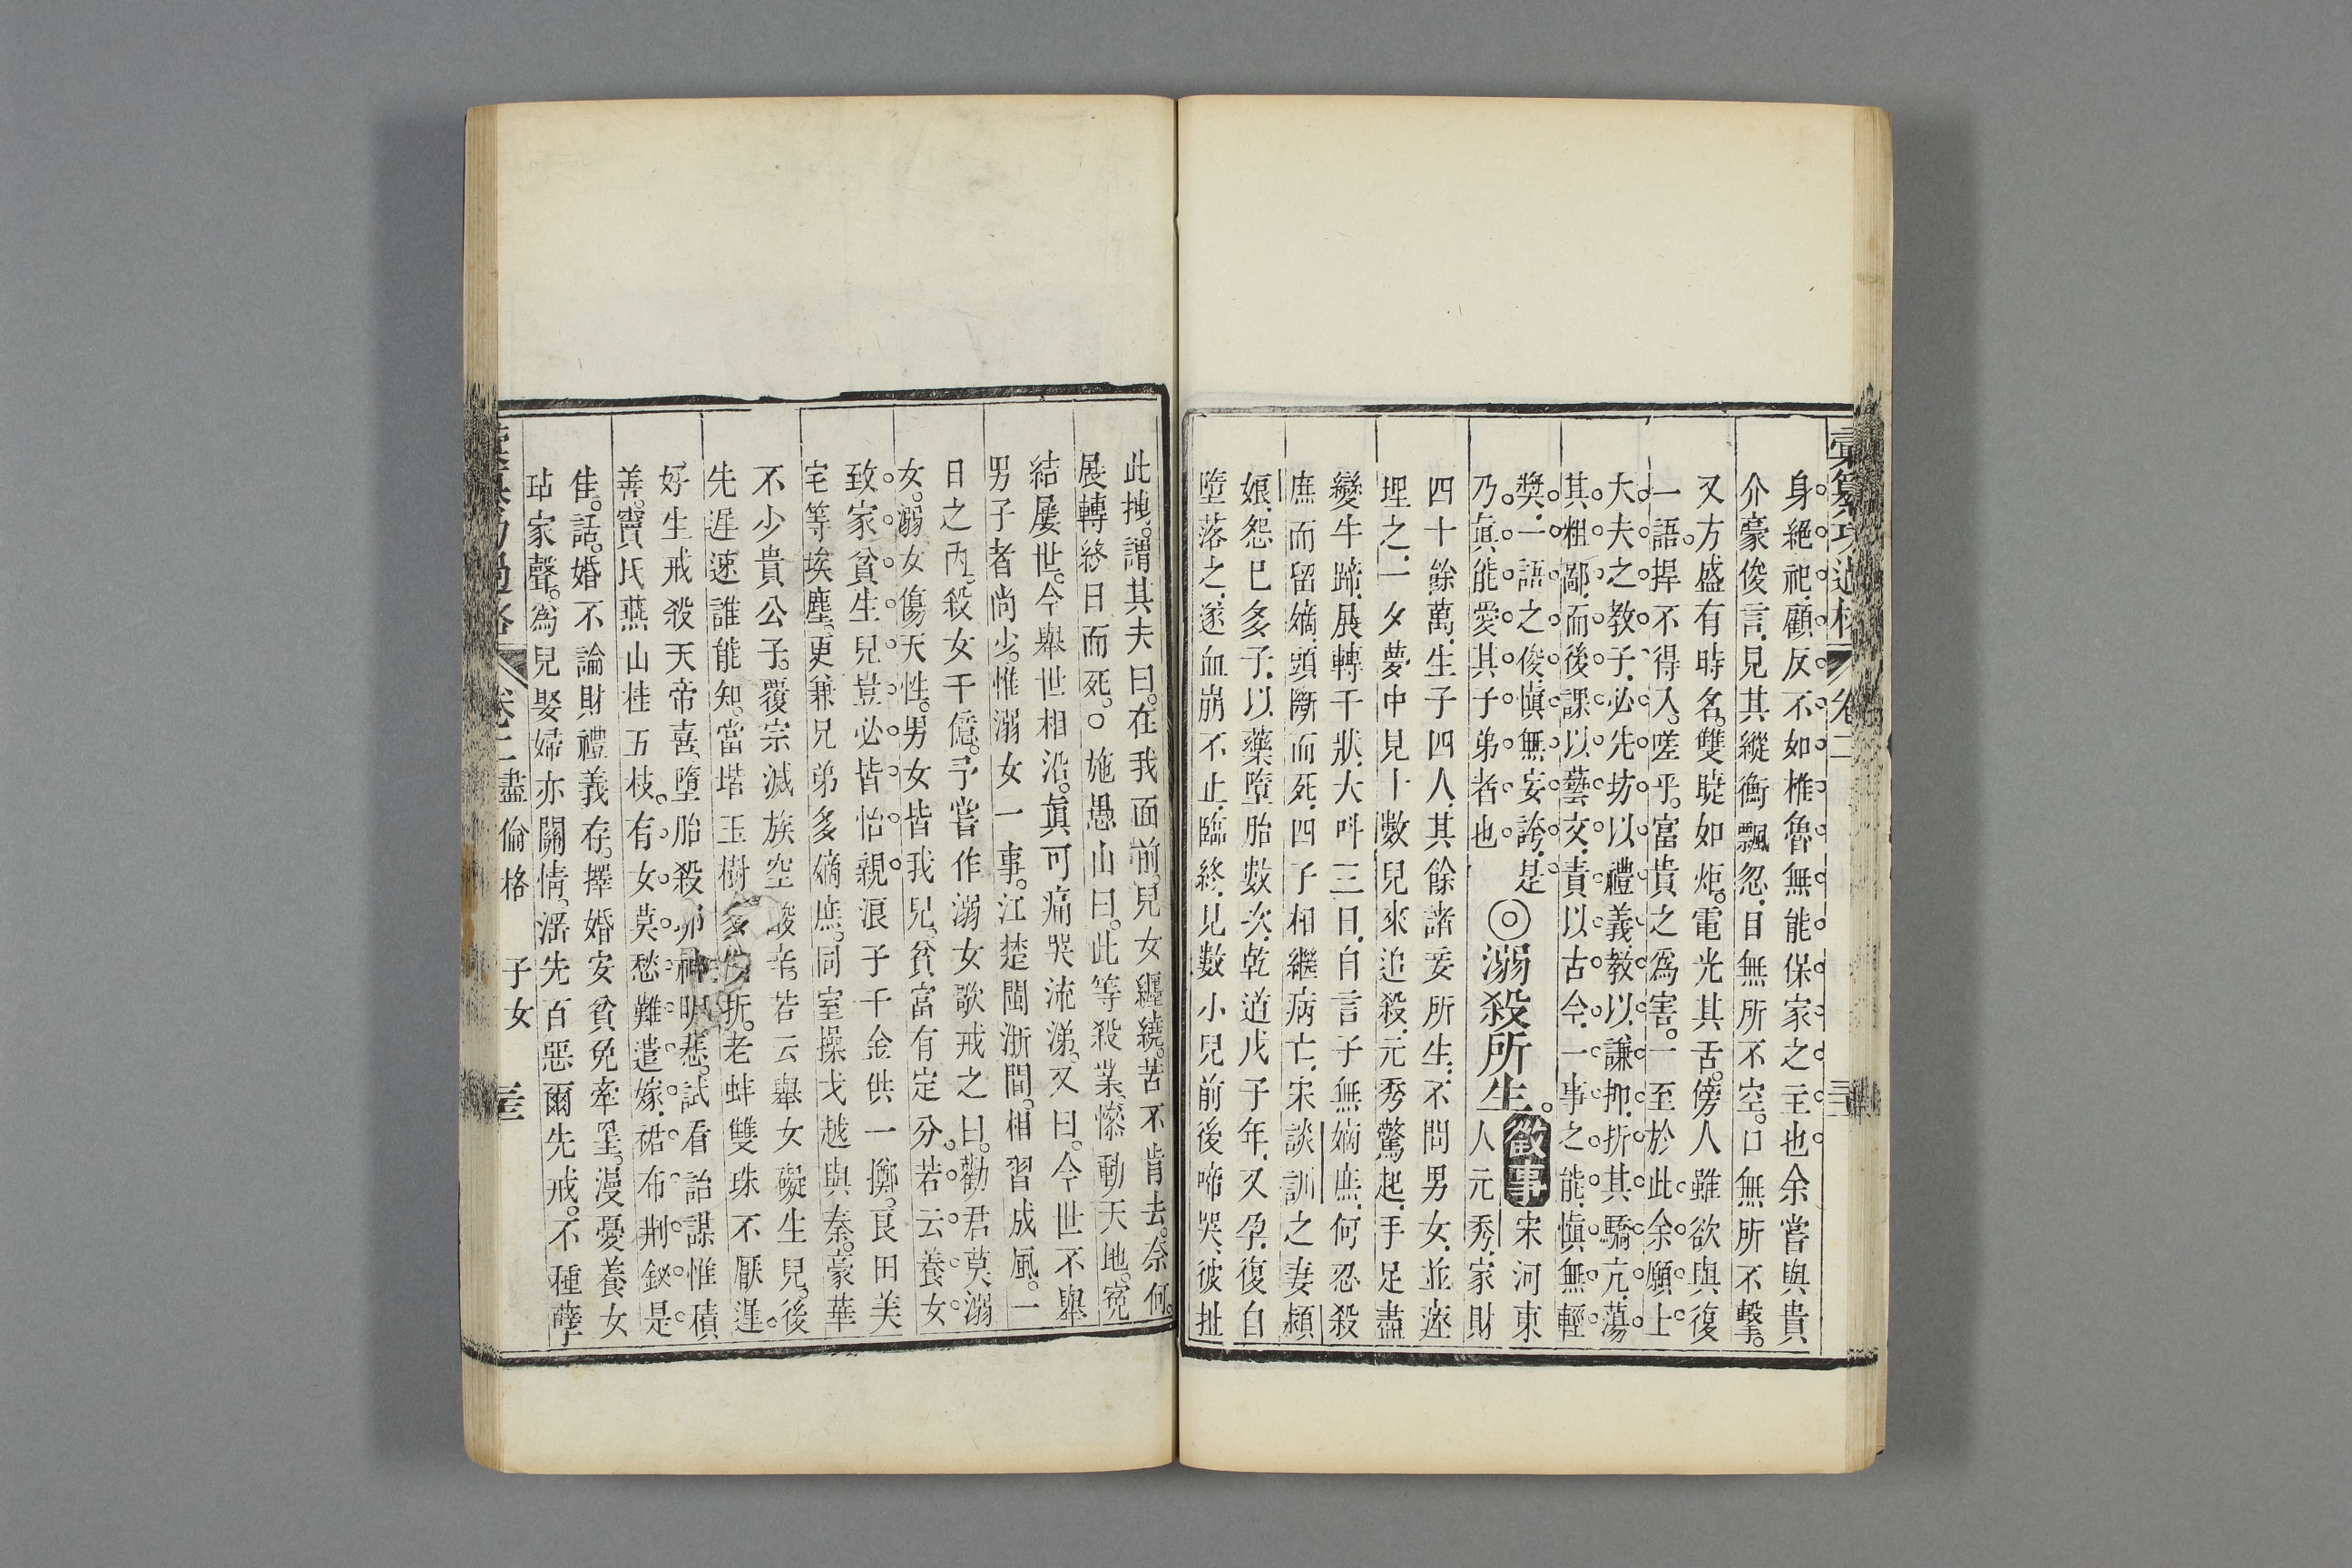 彙纂功過格 卷二
身絕祀顧反不如椎魯無能保家之主也余嘗與貴
介豪俊言見其縱衡飄忽目無所不空口無所不擊
又方盛有時名雙睫如炬電光其舌傍人雖欲與復
一語捍不得入嗟乎富貴之為害一至於此余願士
大夫之教子必先坊以禮義教以謙抑折其驕亢蕩
其粗鄙而後課以藝文責以古今一事之能慎無輕
獎一語之俊慎無妄誇是
乃眞能愛其子弟者也
◎溺殺所生
敘事
宋河東
人元秀家財
四十餘萬生子四人其餘諸妾所生不問男女並瘞
埋之一夕夢中見十數兒來追殺元秀驚起手足盡
變牛蹄展轉千狀大呌三日自言子無嫡庶何忍殺
庶而留嫡頭斷而死四子相繼病亡宋談訓之妻潁
娘怨已多子以藥墮胎數次乾道戊子年又孕復自
墮落之遂血崩不止臨終見數小兒前後啼哭彼扯
此拽謂其夫曰在我面前兒女纏繞苦不肯去奈何
展轉終日而死○施愚山曰此等殺業慘動天地寃
結屢世今舉世相沿眞可痛哭流涕又曰今世不舉
男子者尚少惟溺女一事江楚閩浙間相習成風一
日之內殺女千億予嘗作溺女歌戒之曰勸君莫溺
女溺女傷天性男女皆我兒貧富有定分若云養女
致家貧生兒豈必皆怡親浪子千金供一擲良田美
宅等埃塵更兼兄弟多嫡庶同室操戈越與秦豪華
不少貴公子覆宗滅族空酸辛若云舉女礙生兒後
先遲速誰能知當堦玉樹多先折老蚌雙珠不厭遲
好生戒殺天帝喜墮胎殺卵神明悲試看詒謀惟積
善竇氏燕山桂五枝有女莫愁難遣嫁裙布荆釵是
佳話婚不論財禮義存擇婚安貧免牽罣漫憂養女
玷家聲為兒娶婦亦關情淫先百惡爾先戒不種孽
彙纂功過格 卷二 盡倫格 子女